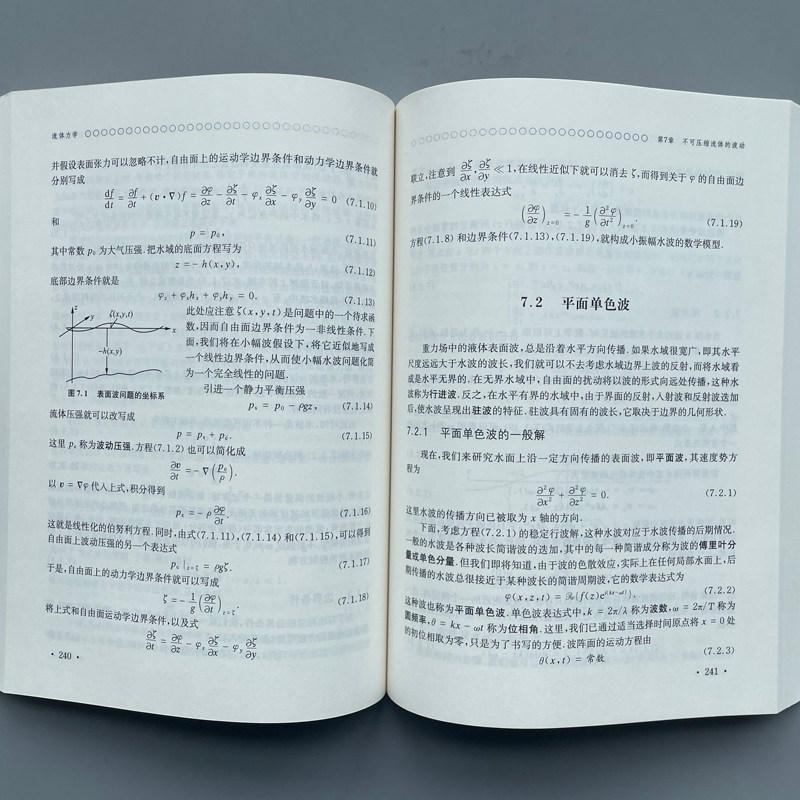 流体力学
并假设表面张力可以忽略不计,自由面上的运动学边界条件和动力学边界条件就
分别写成
df/dt = ∂f/∂t + (v·∇)f = ∂φ/∂z − ∂ζ/∂t − φₓ ∂ζ/∂x − φᵧ ∂ζ/∂y = 0 (7.1.10)
和
p = p₀, (7.1.11)
其中常数 p₀ 为大气压强.把水域的底面方程写为
z = − h(x, y), (7.1.12)
底部边界条件就是
φ_z + φₓhₓ + φᵧhᵧ = 0. (7.1.13)
z
y
ζ(x,y,t)
x
−h(x,y)
图 7.1 表面波问题的坐标系
此处应注意 ζ(x, y, t) 是问题中的一个待求函
数,因而自由面边界条件为一非线性条件.下
面,我们将在小幅波假设下,将它近似地写成
一个线性边界条件,从而使小幅水波问题化简
为一个完全线性的问题.
引进一个静力平衡压强
pₛ = p₀ − ρgz, (7.1.14)
流体压强就可以改写成
p = pₛ + pₑ. (7.1.15)
这里 pₑ 称为波动压强.方程(7.1.2) 也可以简化成
∂v/∂t = − ∇(pₑ/ρ).
以 v = ∇φ 代入上式,积分得到
pₑ = − ρ ∂φ/∂t. (7.1.16)
这就是线性化的伯努利方程.同时,由式(7.1.11)、(7.1.14) 和(7.1.15),可以得到
自由面上波动压强的另一个表达式
pₑ |_{z=ζ} = ρgζ. (7.1.17)
于是,自由面上的动力学边界条件就可以写成
ζ = − 1/g (∂φ/∂t)_{z=ζ}. (7.1.18)
将上式和自由面运动学边界条件,以及式
∂ζ/∂t = ∂φ/∂z − φₓ ∂ζ/∂x − φᵧ ∂ζ/∂y
· 240 ·
第7章 不可压缩流体的波动
联立,注意到 ∂ζ/∂x, ∂ζ/∂y ≪ 1,在线性近似下就可以消去 ζ,而得到关于 φ 的自由面边
界条件的一个线性表达式
(∂φ/∂z)_{z=0} = − 1/g (∂²φ/∂t²)_{z=0}. (7.1.19)
方程(7.1.8) 和边界条件(7.1.13)、(7.1.19),就构成小振幅水波的数学模型.
7.2 平面单色波
重力场中的液体表面波,总是沿着水平方向传播.如果水域很宽广,即其水平
尺度远远大于水波的波长,我们就可以不去考虑水域边界上波的反射,而将水域看
成是水平无界的.在无界水域中,自由面的扰动将以波的形式向远处传播,这种水
波称为行进波.反之,在水平有界的水域中,由于界面的反射,入射波和反射波迭加
后,使水波呈现出驻波的特征.驻波具有固有的波长,它取决于边界的几何形状.
7.2.1 平面单色波的一般解
现在,我们来研究水面上沿一定方向传播的表面波,即平面波,其速度势方
程为
∂²φ/∂x² + ∂²φ/∂z² = 0. (7.2.1)
这里水波的传播方向已被取为 x 轴的方向.
下面,考虑方程(7.2.1) 的稳定行波解,这种水波对应于水波传播的后期情况.
一般的水波是各种波长简谐波的迭加,其中的每一种简谐成分称为波的傅里叶分
量或单色分量.但我们即将知道,由于波的色散效应,实际上在任何局部水面上,后
期传播的水波总很接近于某种波长的简谐周期波,它的数学表达式为
φ(x, z, t) = ℛe{f(z)e^{i(kx−ωt)}}, (7.2.2)
这种波也称为平面单色波.单色波表达式中,k = 2π/λ 称为波数,ω = 2π/T 称为
圆频率,θ = kx − ωt 称为位相角.这里,我们已通过适当选择时间原点将 x = 0 处
的初位相取为零,只是为了书写的方便.波阵面的运动方程由
θ(x, t) = 常数 (7.2.3)
· 241 ·